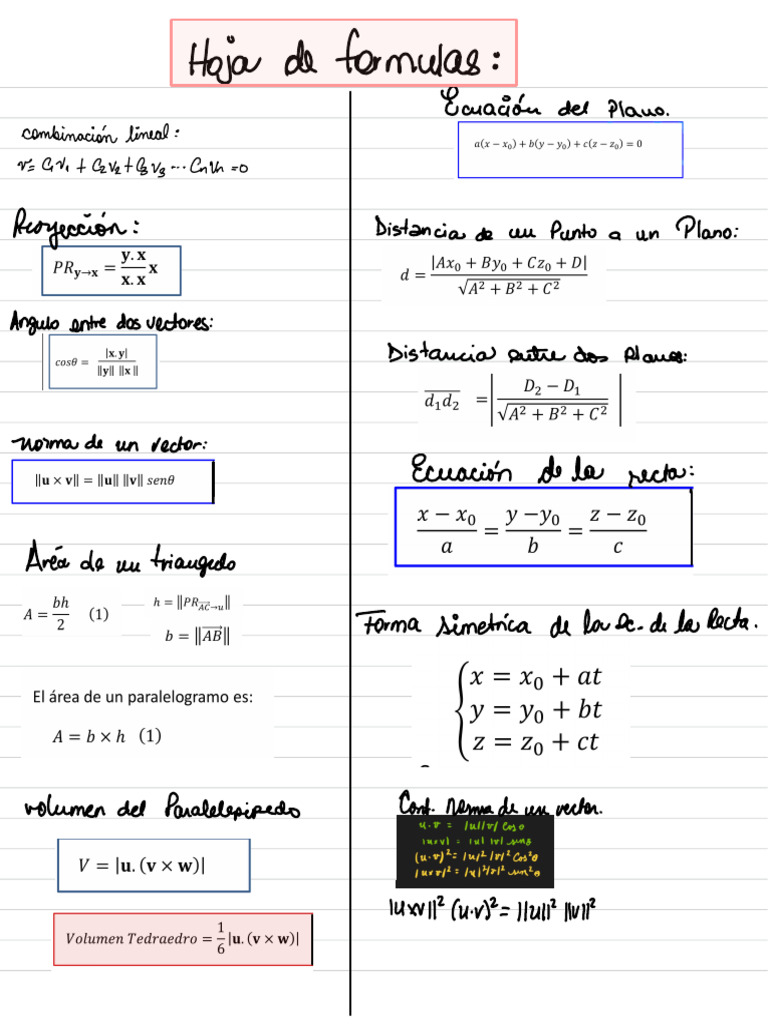 Hoja de formulas:
combinación lineal:
v= C₁v₁ + C₂v₂ + C₃v₃ ... Cnvn = 0
Proyección:
PR_{y→x} = \frac{y.x}{x.x} x
Angulo entre dos vectores:
cosθ = \frac{|x.y|}{‖y‖ ‖x‖}
norma de un vector:
‖u × v‖ = ‖u‖ ‖v‖ senθ
Aréa de un triangulo
A = \frac{bh}{2} (1)
h = ‖PR_{\overrightarrow{AC}→u}‖
b = ‖\overrightarrow{AB}‖
El área de un paralelogramo es:
A = b × h (1)
volumen del Paralelepipedo
V = |u. (v × w)|
Volumen Tedraedro = \frac{1}{6} |u. (v × w)|
Ecuación del Plano.
a(x − x₀) + b(y − y₀) + c(z − z₀) = 0
Distancia de un Punto a un Plano:
d = \frac{|Ax₀ + By₀ + Cz₀ + D|}{\sqrt{A² + B² + C²}}
Distancia entre dos Planos:
\overline{d₁d₂} = |\frac{D₂ − D₁}{\sqrt{A² + B² + C²}}|
Ecuación de la recta:
\frac{x − x₀}{a} = \frac{y − y₀}{b} = \frac{z − z₀}{c}
Forma Simetrica de la Ec. de la Recta.
x = x₀ + at
y = y₀ + bt
z = z₀ + ct
Cont. norma de un vector.
u·v = |u||v| Cosθ
|u×v| = |u| |v| sinθ
(u·v)² = |u|² |v|² Cos²θ
|u×v|² = |u|²|v|² sin²θ
|u×v||² (u·v)² = ||u||² ||v||²